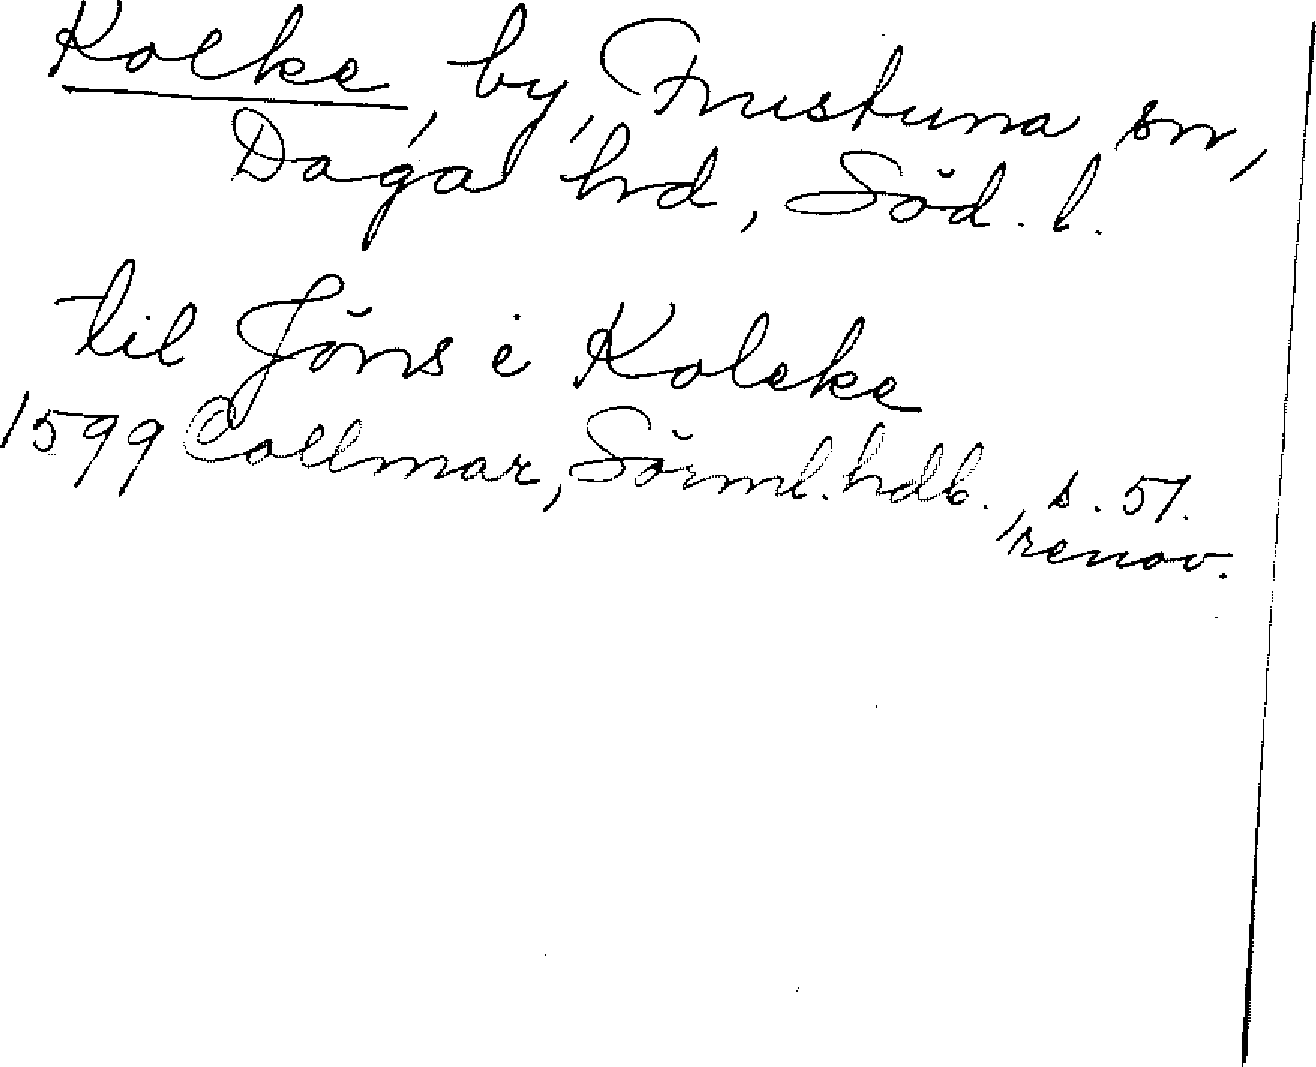 Kolke, by, Frustuna sn,
Daga hd, Söd. l.
til Jöns i Koleke
1599 Collmar, Sörml. hdl., s. 51.
renov.